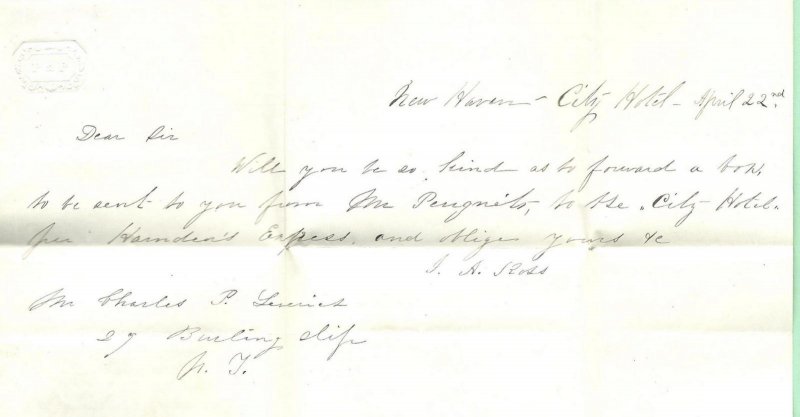 New Haven - City Hotel - April 22nd.
Dear Sir
Will you be so kind as to forward a box,
to be sent to you from Mr Peugnets, to the "City Hotel"
per Harnden's Express, and oblige yours &c
J. A. Ross
Mr Charles P. Leverich
27 Burling Slip
N. Y.